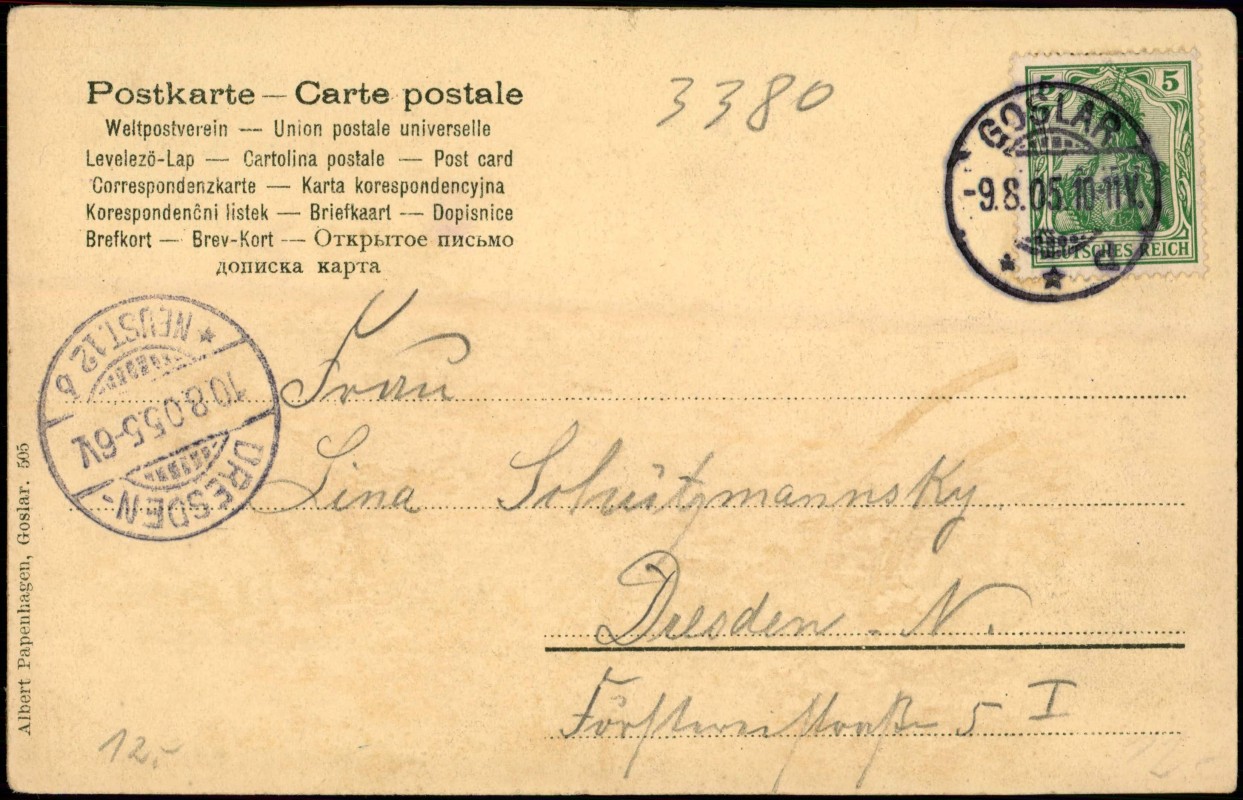 Postkarte — Carte postale
Weltpostverein — Union postale universelle
Levelezö-Lap — Cartolina postale — Post card
Correspondenzkarte — Karta korespondencyjna
Korespondenčni listek — Briefkaart — Dopisnice
Brefkort — Brev-Kort — Открытое письмо
дописка карта
3380
5 5
DEUTSCHES REICH
GOSLAR
-9.8.05.10-11V.
* * d
DRESDEN-
10.8.05.5-6V.
* NEUST.12 b
Frau
Lina Schützmannsky
Dresden - N.
Förstereistraße 5 I
Albert Papenhagen, Goslar. 505
12,-
12,-